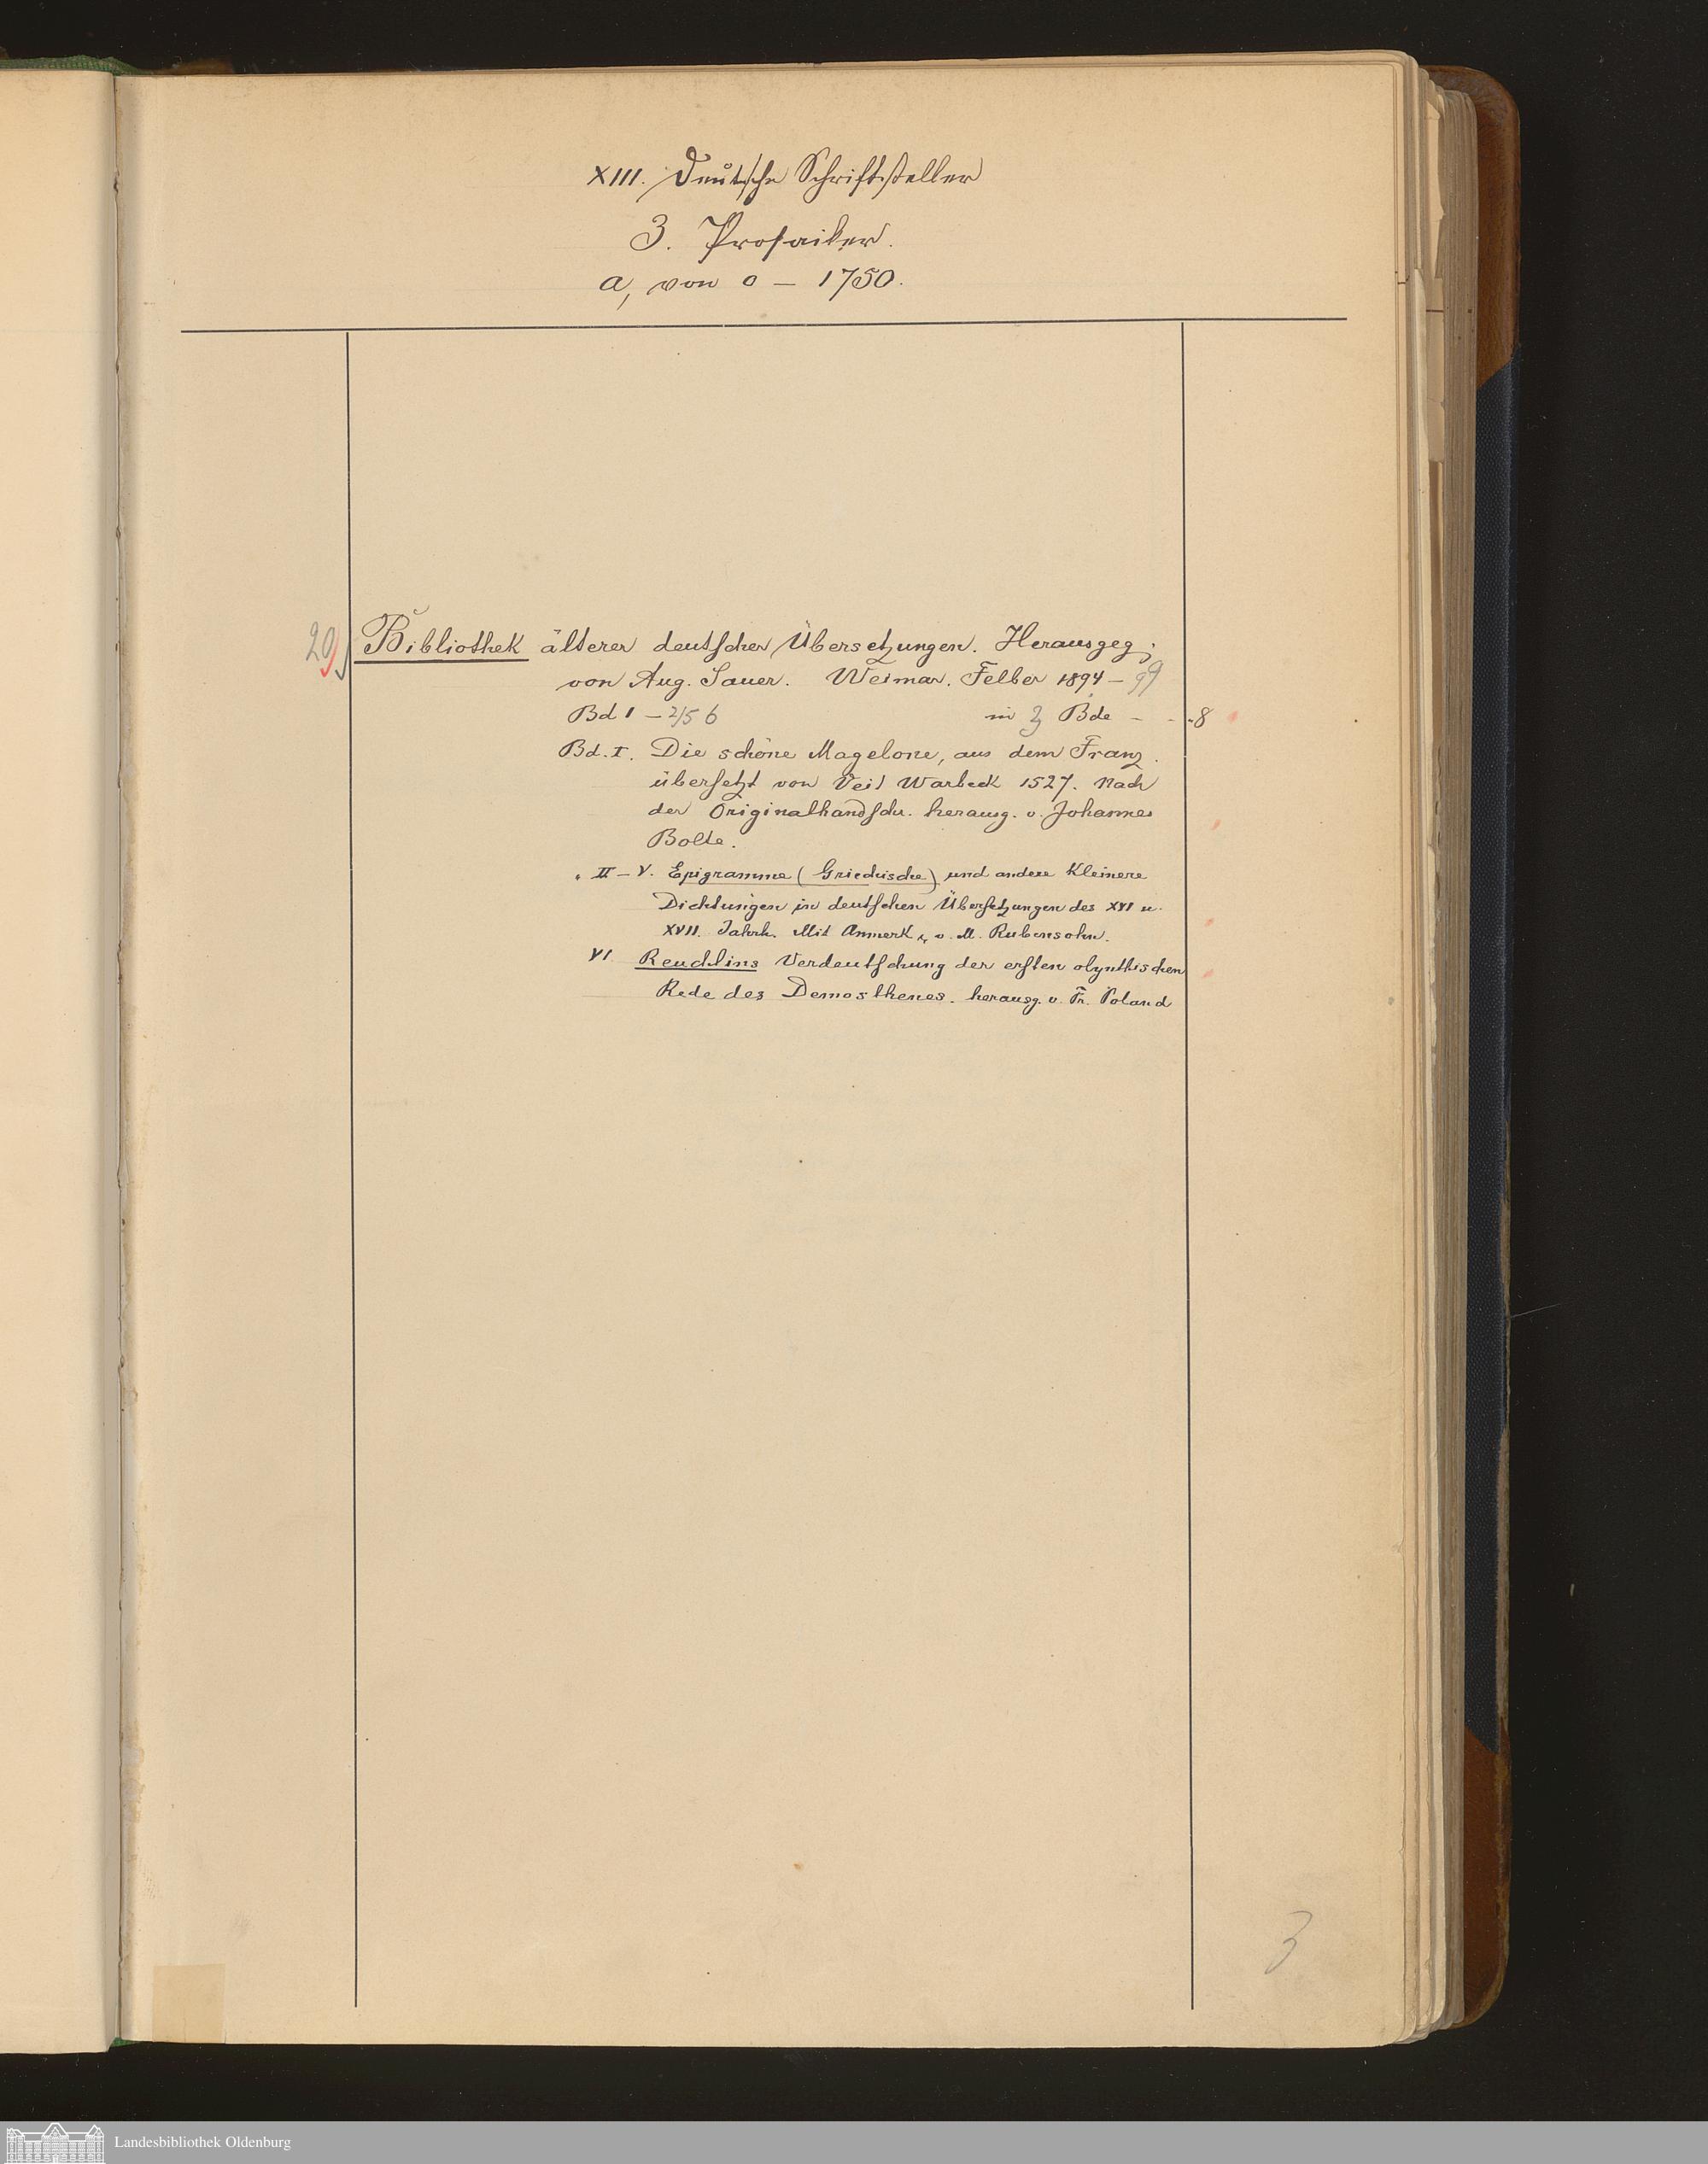 XIII. Deutsche Schriftsteller
3. Prosaiker.
a, von 0 – 1750.
20
Bibliothek älterer deutscher Übersetzungen. Herausgeg.
von Aug. Sauer. Weimar. Felber 1894 – 99
Bd 1 – 6 in 3 Bde - - - 8
Bd. I. Die schöne Magelone, aus dem Franz.
übersetzt von Veit Warbeck 1527. Nach
der Originalhandschr. herausg. v. Johannes
Bolte.
" II – V. Epigramme (Griechische) und andere kleinere
Dichtungen in deutschen Übersetzungen des XVI u.
XVII. Jahrh. Mit Anmerk. v. M. Rubensohn.
VI Reuchlins Verdeutschung der ersten olynthischen
Rede des Demosthenes. herausg. v. Fr. Poland
3
Landesbibliothek Oldenburg